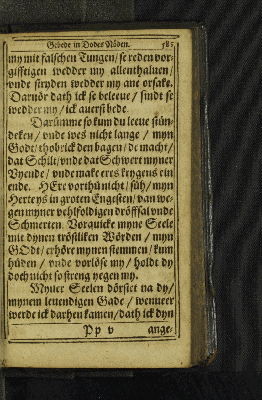 Gebede in Dodes Nöden. 585
my mit falschen Tungen/ se reden vor-
gifftigen wedder my allenthaluen/
vnde stryden wedder my ane orsake.
Darvör dath ick se beleeue/ sindt se
wedder my/ ick auerst bede.
Darümme so kum du leeue
vnde wes nicht lange/ myn
Godt/ thobrick den bagen/ de macht/
dat Schilt/ vnde dat Schwert myner
Vyende/ vnde make eres krygens ein
ende. HEre vorthü nicht/ süh/ myn
Herte ys in groten Engesten/ van we-
gen myner vehlfoldigen dröffsal vnde
Schmerten. Vorquicke myne Seele
mit dynen tröstliken Wörden/ myn
GOdt/ erhöre mynen stemmen/ kum
hüden/ vnde vorlöse my/ holdt dy
doch nicht so streng yegen my.
Myner Seelen dörstet na dy/
mynem leuendigen Gade/ wenneer
werde ick darhen kamen/ dath ick dyn
Pp v ange-